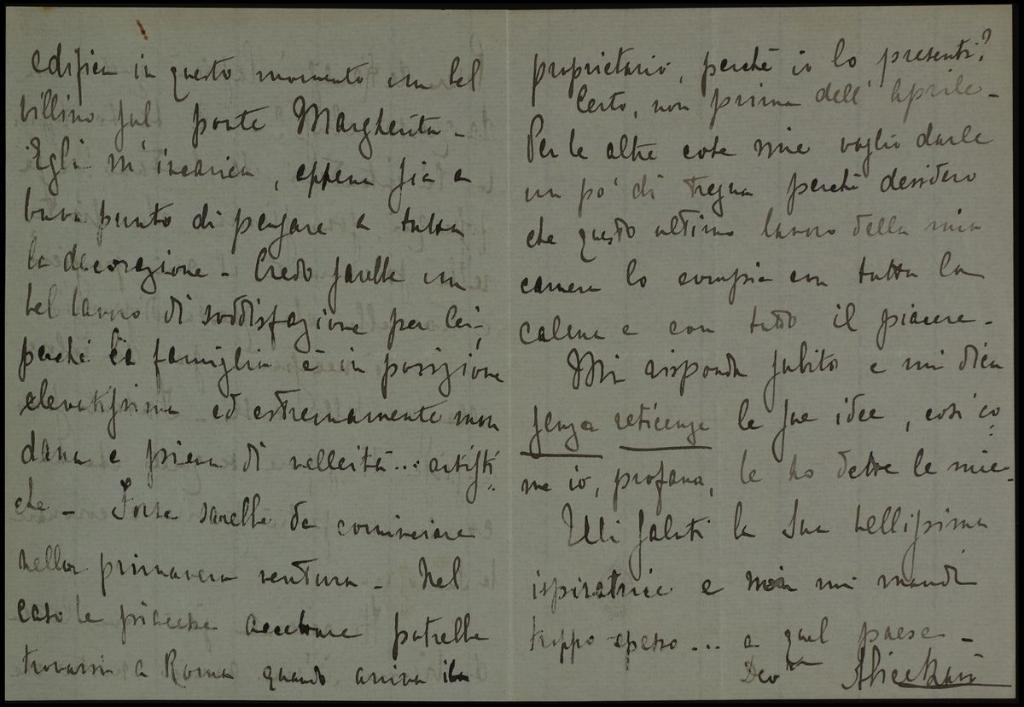 edifica in questo momento un bel
villino sul ponte Margherita -
Egli m'incarica, appena sia a
buon punto di pensare a tutta
la decorazione - Credo sarebbe un
bel lavoro di soddisfazione per lei,
perchè la famiglia è in posizione
elevatissima ed estremamente mon
dana e piena di velleità... artisti
che - Forse sarebbe da cominciare
nella primavera ventura - Nel
caso le piacesse accettare potrebbe
trovarsi a Roma quando arriva il
proprietario, perchè io lo presenti?
Certo, non prima dell'Aprile -
Per le altre cose mie voglio darle
un po' di tregua perchè desidero
che questo ultimo lavoro della mia
camera lo compia con tutta la
calma e con tutto il piacere -
Mi risponda subito e mi dica
senza reticenze le sue idee, così co
me io, profana, le ho dette le mie -
Mi saluti la Sua bellissima
ispiratrice e non mi mandi
troppo spesso... a quel paese -
Dev ma Alice